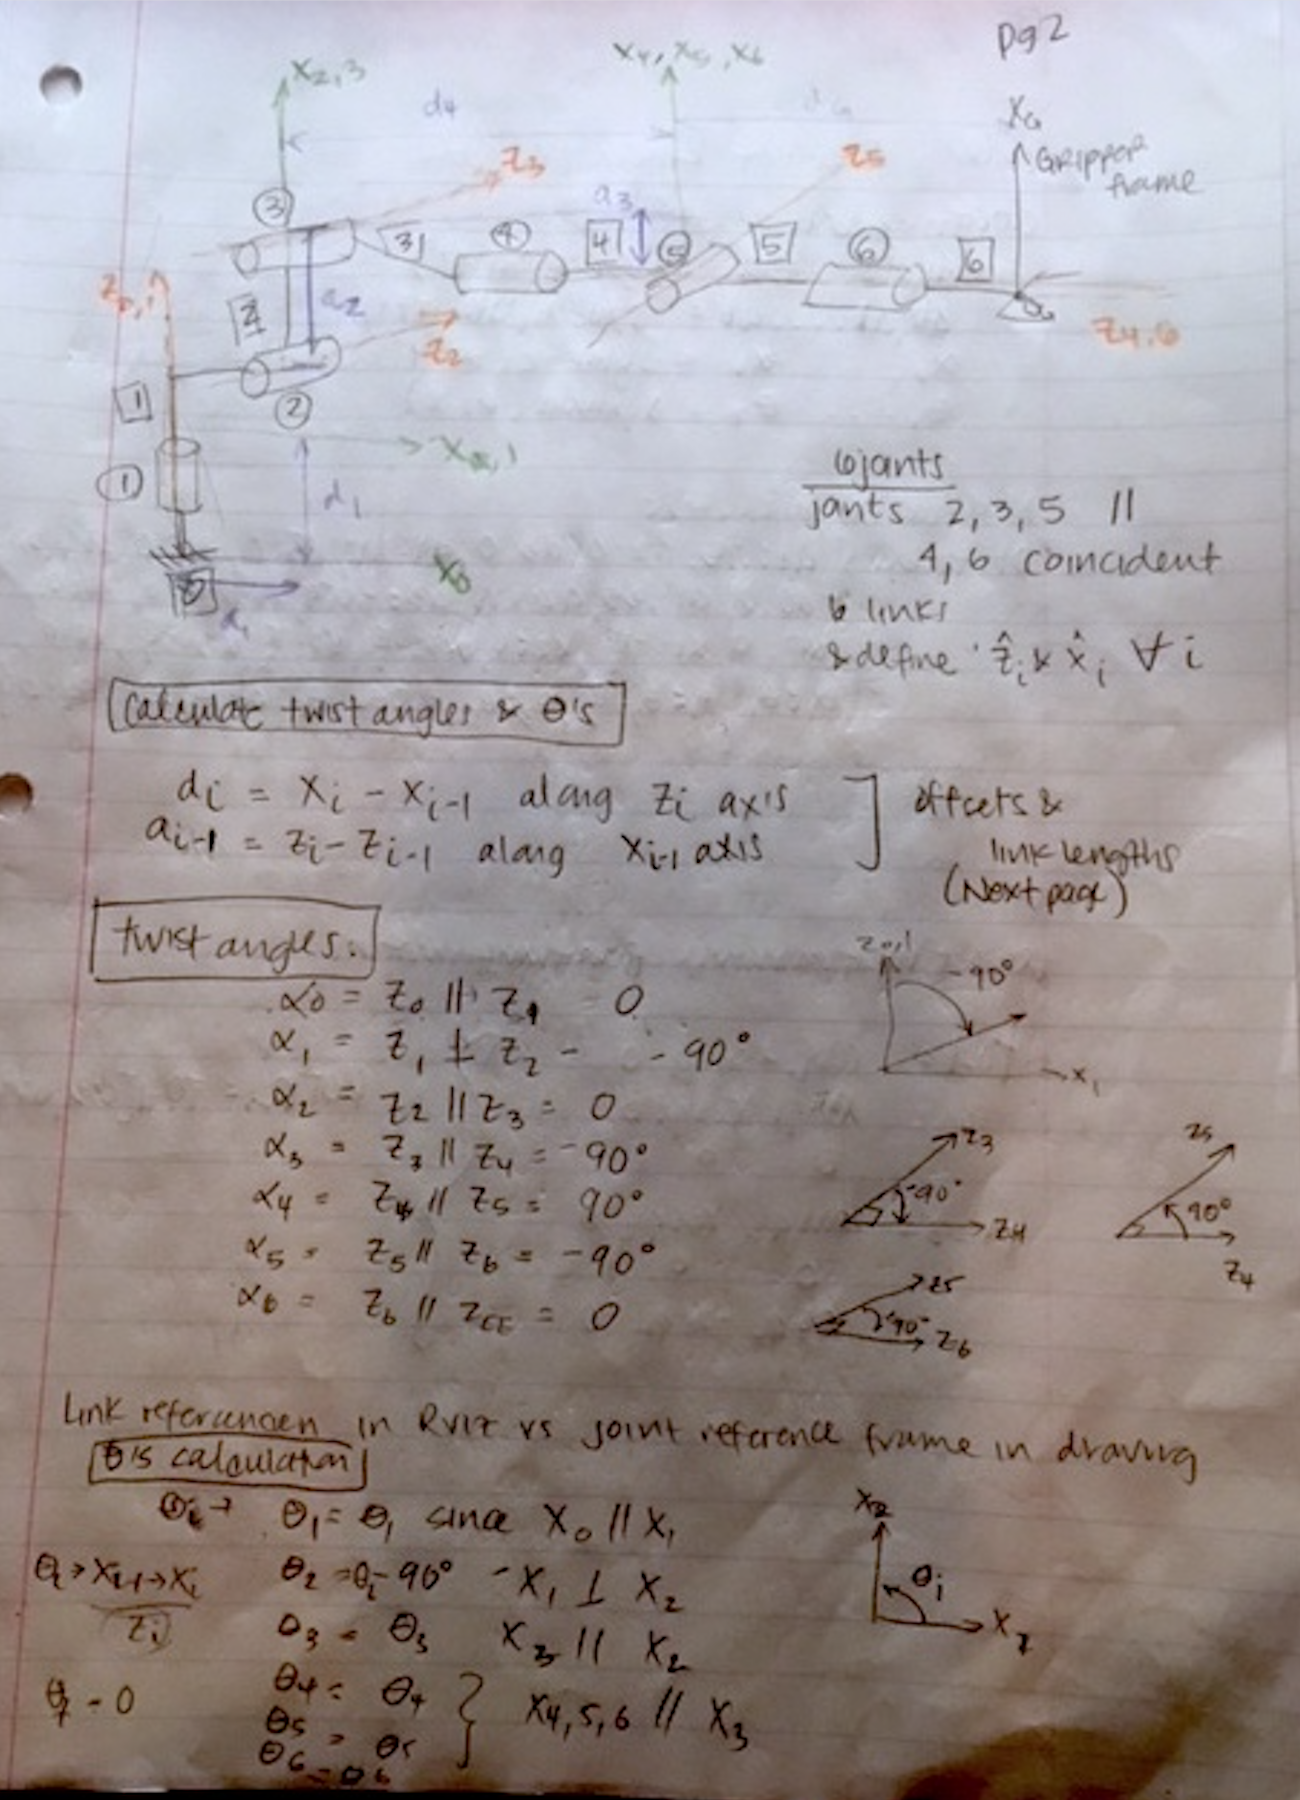 pg 2
X2,3
X4, X5, X6
d4
XG
Gripper frame
Z3
Z5
a3
3
3
4
4
5
5
6
6
Z0,1
2
a2
Z2
Z4,6
1
2
1
X1
d1
X0
0
a1
6 joints
joints 2, 3, 5 //
4, 6 coincident
6 links
& define ẑi & x̂i ∀ i
calculate twist angles & θ's
di = Xi - Xi-1 along Zi axis
ai-1 = Zi - Zi-1 along Xi-1 axis
offsets & link lengths (Next page)
twist angles:
α0 = Z0 || Z1 0
α1 = Z1 ⊥ Z2 - -90°
α2 = Z2 || Z3 = 0
α3 = Z3 || Z4 = -90°
α4 = Z4 || Z5 = 90°
α5 = Z5 || Z6 = -90°
α6 = Z6 || ZEE = 0
Z0,1
-90°
X1
Z3
-90°
Z4
Z5
90°
Z4
Z5
-90°
Z6
Link referencen in RVIZ vs joint reference frame in drawing
θ's calculation
θi → θ1 = θ1 since X0 // X1
θi → Xi-1 → Xi
Zi
θ2 = θi - 90° - X1 ⊥ X2
θ3 = θ3 X3 // X2
θ4 = θ4
θ5 = θ5
θ6 = θ6
X4,5,6 // X3
θ7 - 0
X2
θi
X1